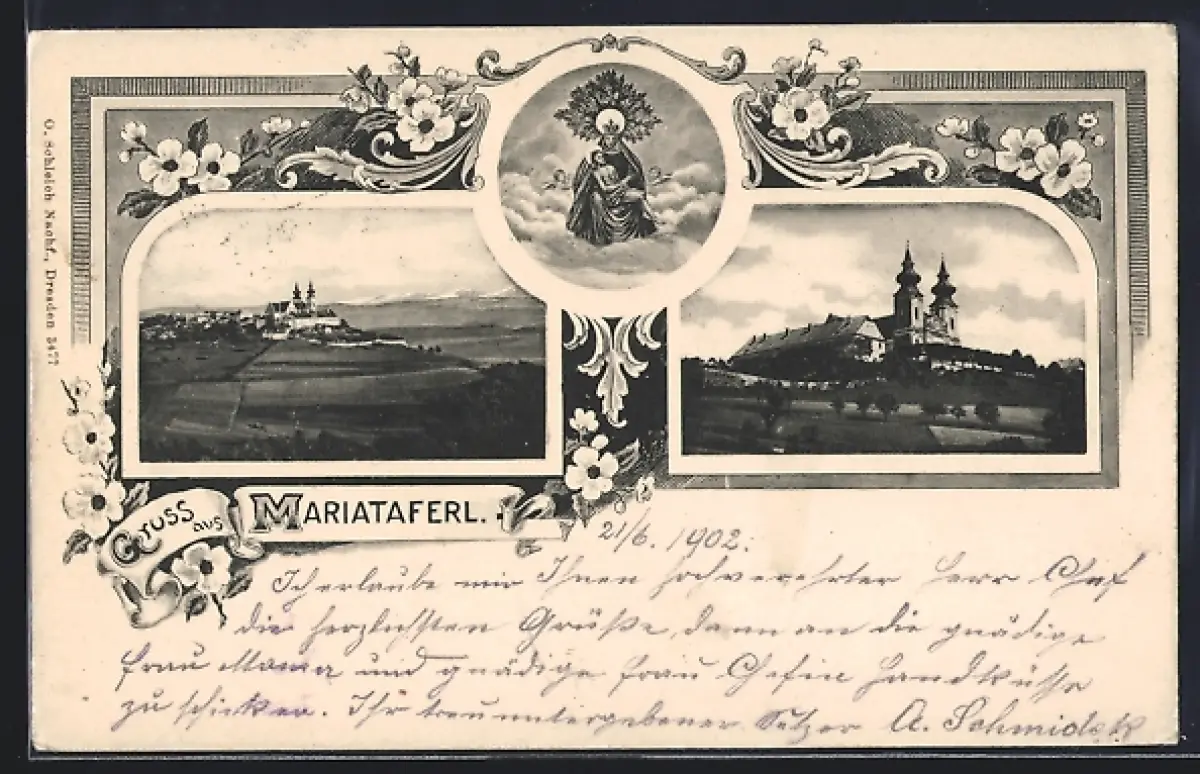 O. Schleich Nachf., Dresden 5477
Gruss aus MARIATAFERL.
21/6. 1902.
Ich erlaube mir Ihnen hochverehrter Herr Chef
die herzlichsten Grüße, dann an die gnädige
Frau Mama und gnädige Frau Chefin Handküsse
zu schicken. Ihr treu untergebener Setzer A. Schmideck